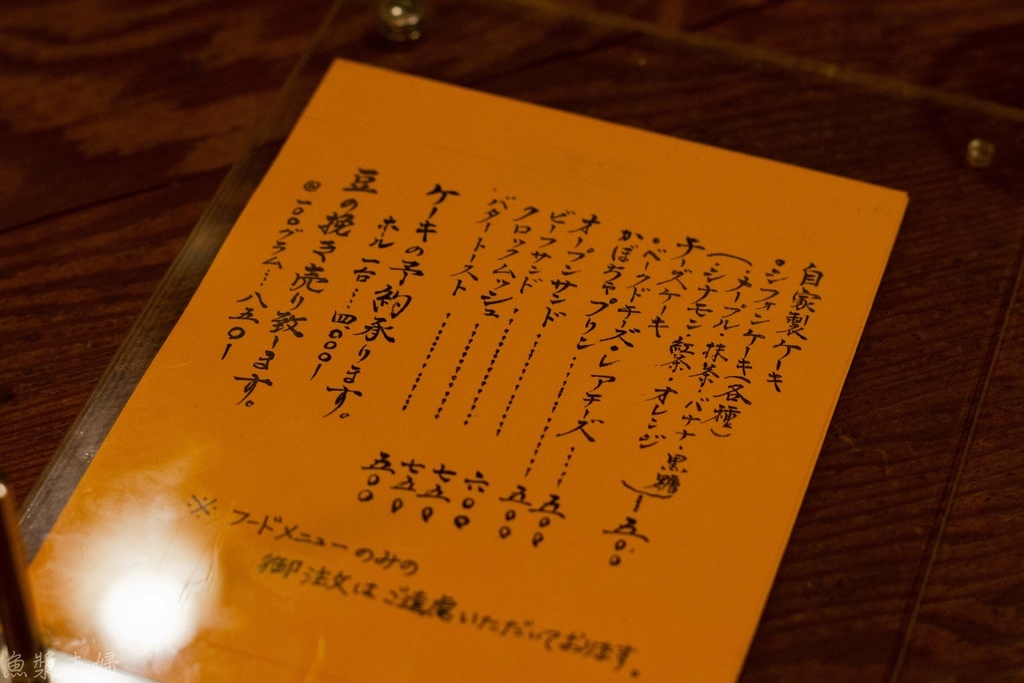 自家製ケーキ
・シフォンケーキ（各種）
（・メープル・抹茶・バナナ・黒糖
・シナモン・紅茶・オレンジ）ー五〇〇
チーズケーキ
・ベークドチーズ・レアチーズ……五〇〇
かぼちゃプリン……五〇〇
オープンサンド……六〇〇
ビーフサンド……七五〇
クロックムッシュ……七五〇
バタートースト……五〇〇
ケーキの予約承ります。
ホール一台…四〇〇〇ー
豆の挽き売り致します。
@一〇〇グラム…八五〇ー
※フードメニューのみの
御注文はご遠慮いただいております。
魚漿夫婦